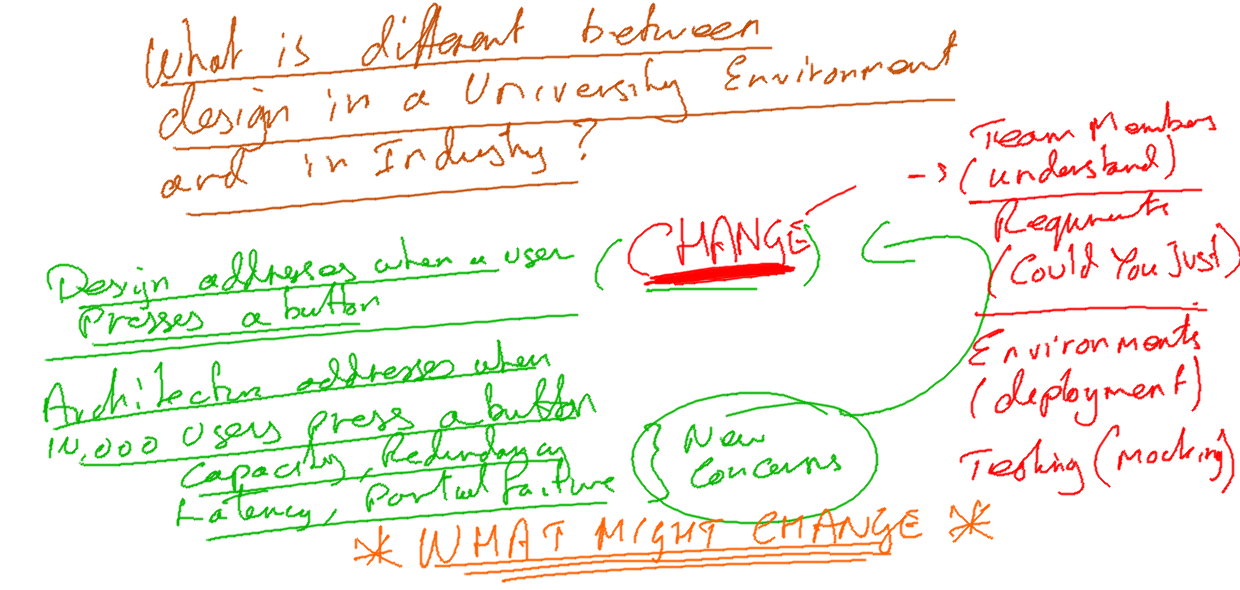 What is different between
design in a University Environment
and in Industry?
Team Members
(understand)
Requments
(Could You Just)
Environments
(deployment)
Testing (Mocking)
(CHANGE)
Design addresses when a user
Presses a button
Architecture addresses when
10,000 users press a button
Capacity, Redundancy
Latency, Partial Failure
New
Concerns
* WHAT MIGHT CHANGE *